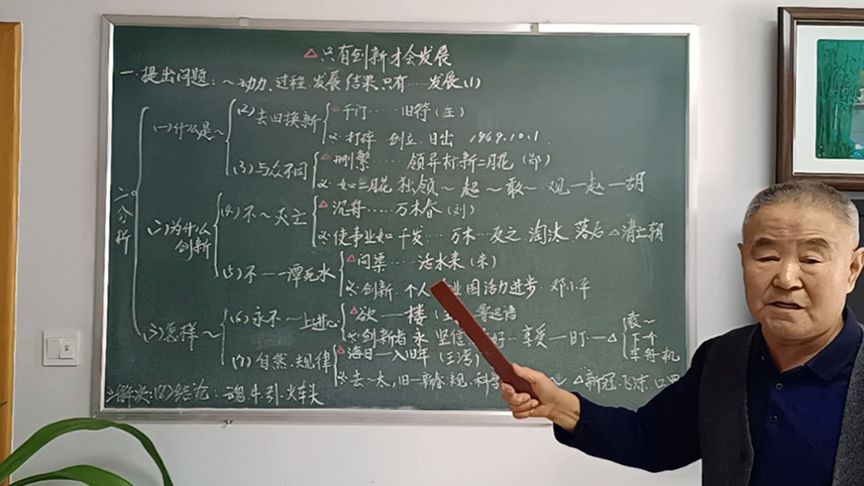 △只有创新才会发展
一.提出问题：～动力.过程.发展 结果.只有……发展(1)
二.分析
(一)什么是～
(2)去旧换新
千门……旧符(王)
打碎 创立.日出 1949.10.1.
(3)与众不同
删繁……领异标新二月花(郑)
如二月花 独领～超～敢～观—赵—胡
(二)为什么创新
(4)不～灭亡
△沉舟……万木春(刘)
使事业如千发…万木…反之 淘汰 落后△清亡朝
(5)不一一潭死水
△问渠……活水来(朱)
创新.个人 业国活力进步.邓小平
(三)怎样～
(6)永不一上进心
△欲—楼
创新者永 坚信 好…享受一时—△
下个
(7)自然.规律
△海日—入旧年(王湾)
去～太,旧—新春 规.科学 △新冠.飞沫.口罩
三解决:(8)结论：魂.牛.引.火车头